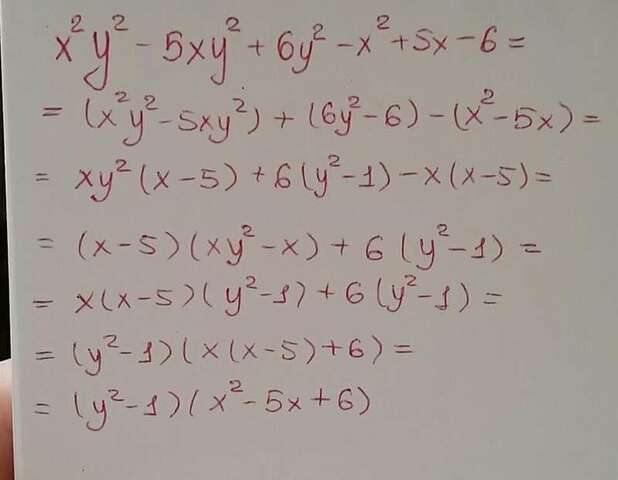 x²y² - 5xy² + 6y² - x² + 5x - 6 =
= (x²y² - 5xy²) + (6y² - 6) - (x² - 5x) =
= xy²(x - 5) + 6(y² - 1) - x(x - 5) =
= (x - 5)(xy² - x) + 6(y² - 1) =
= x(x - 5)(y² - 1) + 6(y² - 1) =
= (y² - 1)(x(x - 5) + 6) =
= (y² - 1)(x² - 5x + 6)